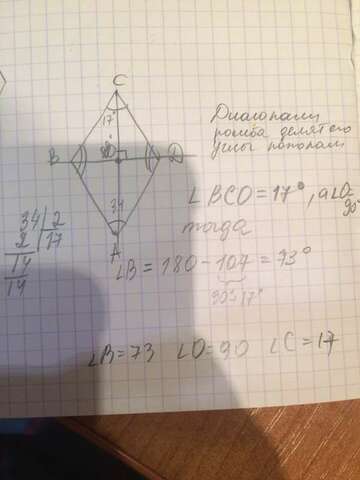 C
17°
B
O
D
34
A
Диагонали
ромба делят его
углы пополам
∠BCO = 17°, а ∠O = 90°
тогда
∠B = 180 - 107 = 73°
90° 17°
34 2
2 17
14
14
∠B = 73 ∠O = 90 ∠C = 17